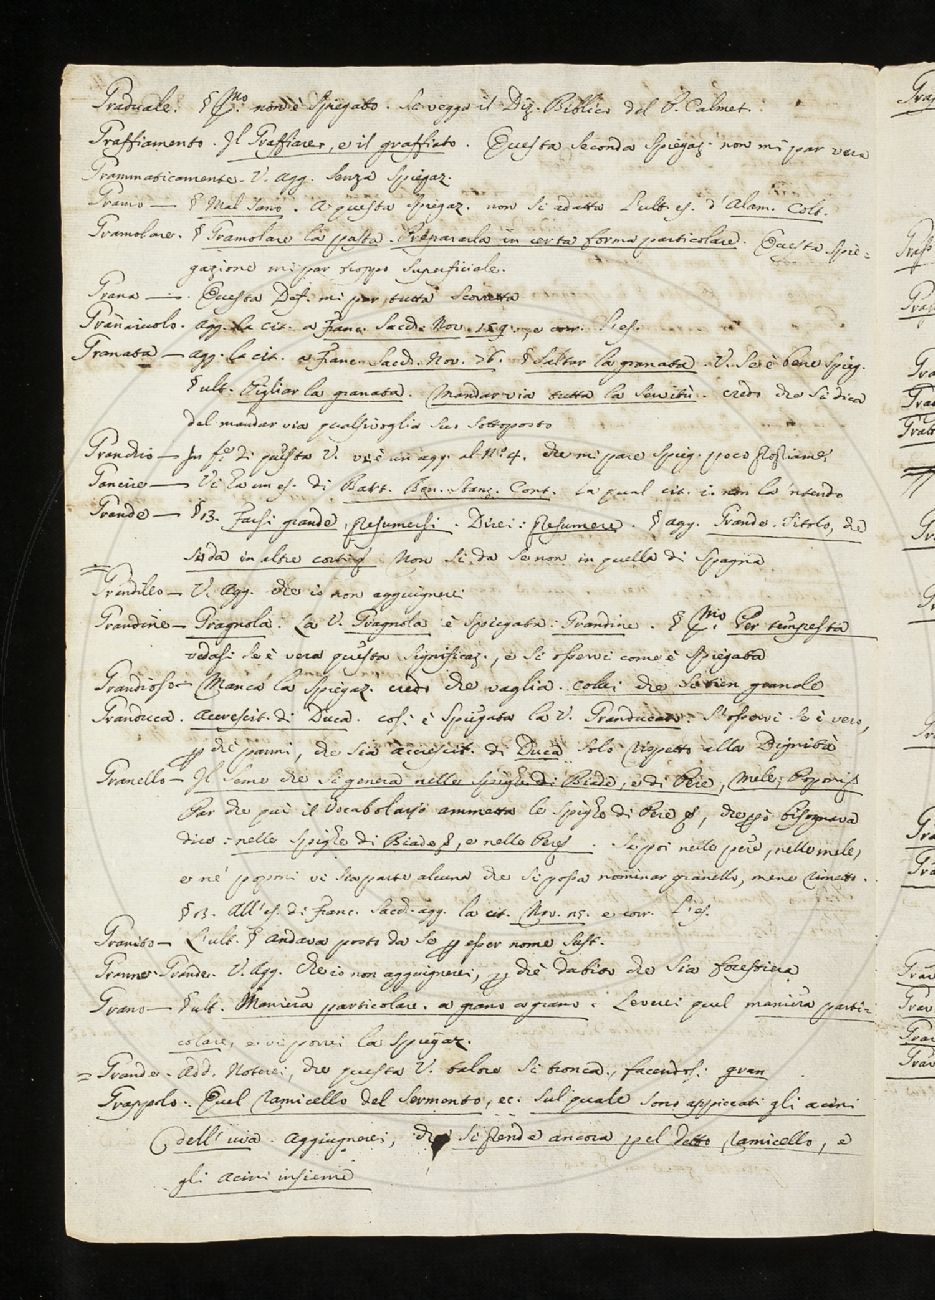 Graduale. § Pmo non è spiegato. Se vegga il Diz. Biblico del P. Calmet.
Graffiamento. Il Graffiare, e il graffiato. Questa seconda spiegaz. non mi par vera
Grammaticamente. V. agg. senza spiegaz.
Gramo — § Mal sano. A questa spiegaz. non si adatta l'ult. es. d'Alam. Colt.
Gramolare. § Gramolare la pasta. Prepararla in certa forma particolare. Questa spie=
gazione mi par troppo superficiale.
Grana — Questa Def. mi par tutta scorretta
Granaiuolo. agg. la cit. a Franc. Sacch. Nov. 159. e corr. l'es.
Granata — agg. la cit. a Franc. Sacch. Nov. 76. § Saltar la granata. V. se è bene spieg.
§ ult. Pigliar la granata. Mandar via tutta la servitù. credo che si dica
del mandar via qualsivoglia suo sottoposto
— In fe. di questa V. v'è un agg. al N. 4. che mi pare spieg. poco
— Vi ha un es. di Batt. Ben. Stanz. Cont. la qual cit. i. non la 'ntendo
Grande — § 13. Farsi grande, Presumersi. Direi: Presumere. § agg. Grande. Titolo, che
si da in altre corti. Non si da se non in quella di Spagna.
= — V. Agg. che io non aggiugnerei
Grandine — Gragnola. La V. Gragnola è spiegata: Grandine. § Pmo. Per tempesta
vedasi se è vera questa significaz., e si osservi come è spiegata
Grandioso — Manca la spiegaz. credo che vaglia. colui che se tien grande
Granduca. Accrescit. di Duca. così è spiegata la V. Granducato. S'osservi se è vero,
che parmi, che sia accrescit. di Duca solo rispetto alla Dignità
Granello — Il seme che si genera nelle spighe di Biade, e di Pere, Mele, Poponi
Par che quì il Vocabolario ammetta le spighe di Pere, che però bisognava
dire: nelle spighe di Biade, e nelle Pere. Se poi nelle pere, nelle mele,
e ne' poponi vi sia parte alcuna che si possa nominar granello, mene rimetto.
§ 13. All'es. di Franc. Sacch. agg. la cit. Nov. 115. e corr. l'es.
Granito — L'ult. § andava posto da se per esser nome sust.
V. Agg. che io non aggiugnerei, per chè dubito che sia forestiera
Grano — § ult. Maniera particolare. a grano a grano. Leverei quel maniera parti=
colare, e vi porrei la spiegaz.
= Grande. Add. Noterei, che questa V. talora si tronca, facendosi gran
Grappolo. Quel ramicello del sermento, ec. sul quale sono appiccati gli acini
dell'uva. Aggiugnerei, che si prende ancora pel detto ramicello, e
gli acini insieme